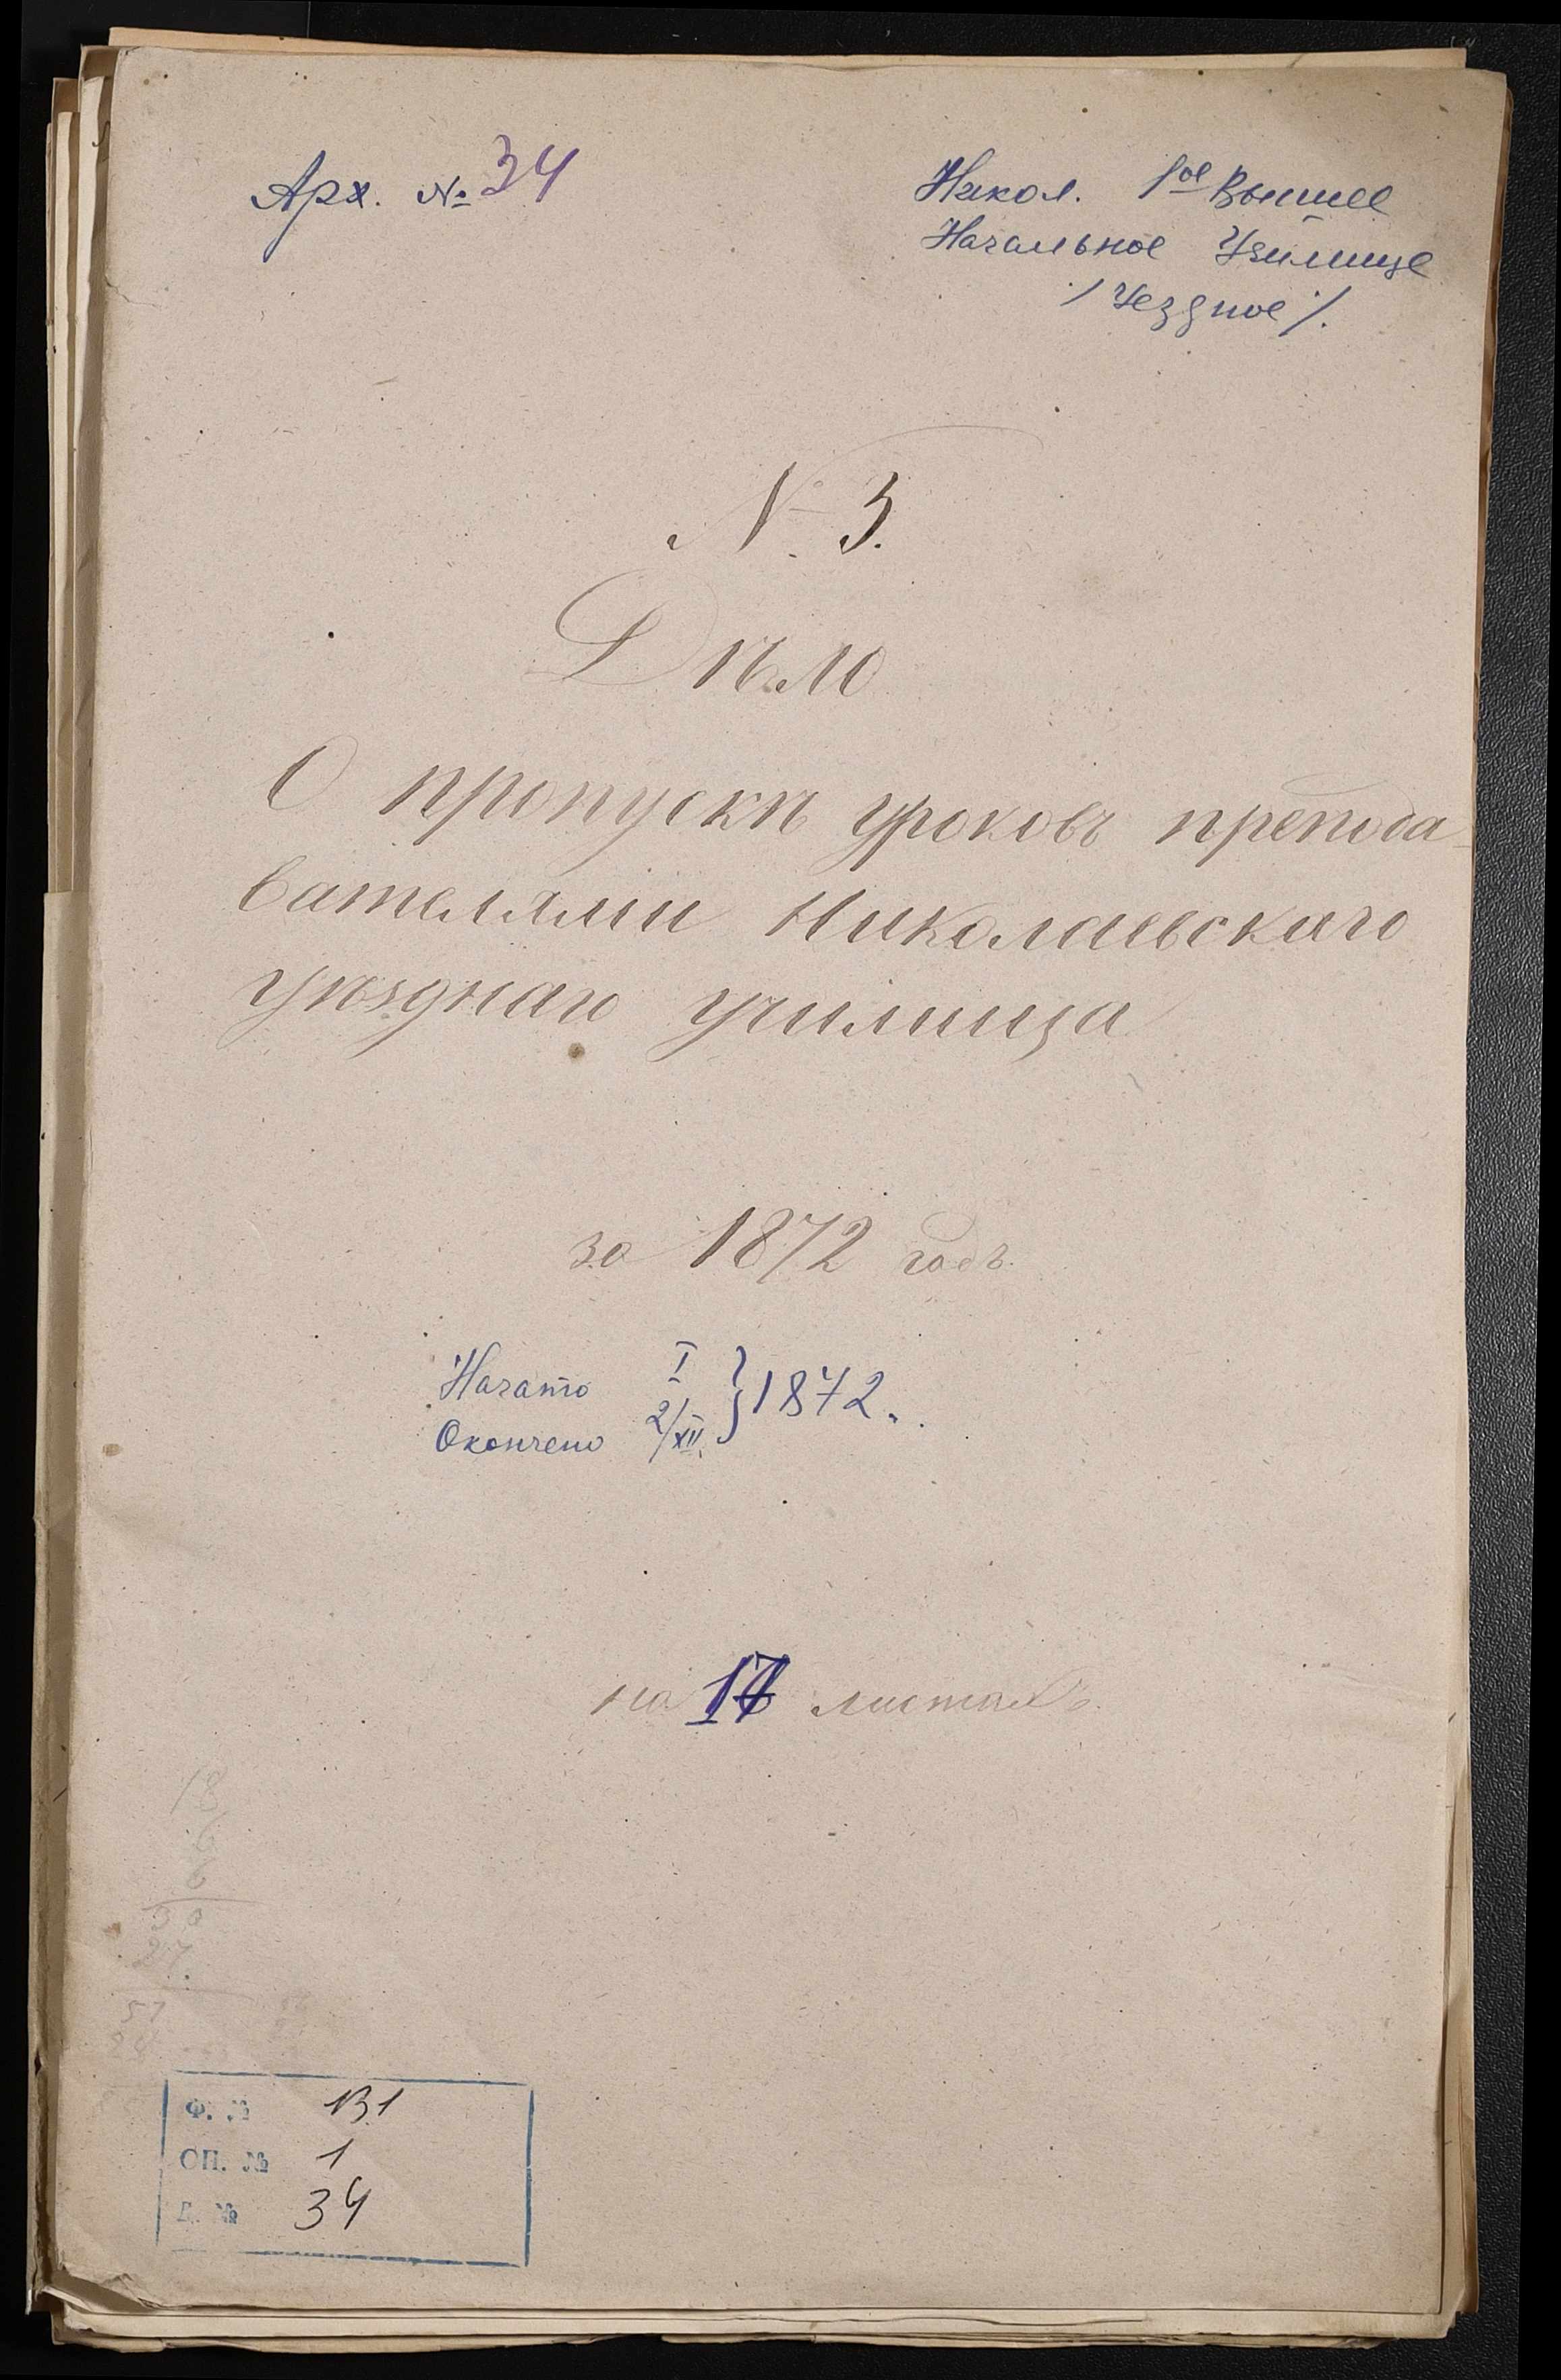 Арх. № 34
Никол. 1ое Высшее
Начальное Училище
/Уездное/.
№ 3.
Дѣло
О пропускѣ уроковъ препода-
вателями Николаевскаго
уѣзднаго училища
за 1872 годъ.
Начато I } 1872.
Окончено 2/XII.
на 17 листахъ.
18
6
6
30
27
57
Ф. № 131
ОП. № 1
Д. № 34